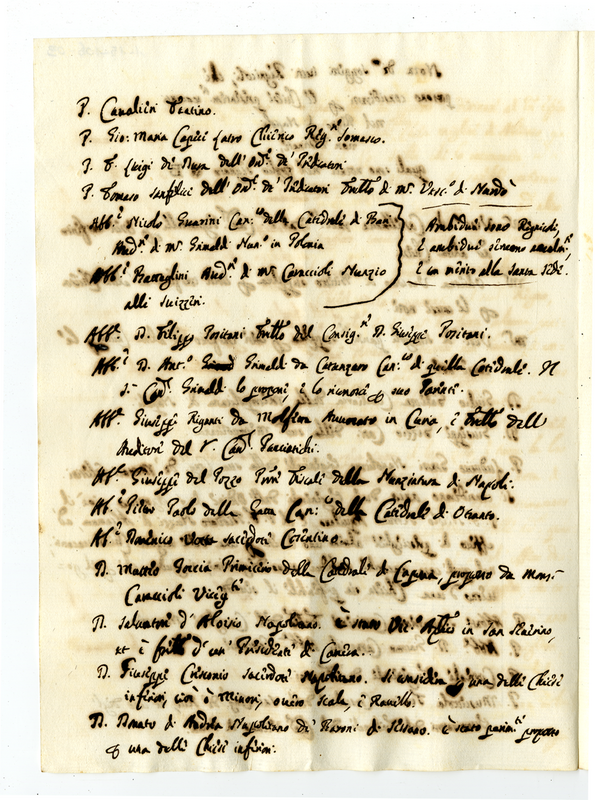 P. Cavalieri Teatino.
P. Gio: Maria Capici Latro Chierico Reg.re Somasco.
P. F. Luigi di Nusa dell'Ord.e de' Pñdicatori
P. Tomaso Sanfelici dell'Ord.e de' Pñdicatori frãllo di m.r Vesc.o di Nardò
Abb.e Nicolò Guarini Can.co della Catedrale di Bari
Aud.re di m.r Grimaldi Nun.o in Polonia
Abb.e Battaglini Aud.re di m.r Caraccioli Nunzio
alli Suizzeri.
Ambidui sono Regnicoli,
è ambidui
è un merito alla Santa Sede.
Abb.e D. Filippo Positani frãllo del Consig.re D. Giuseppe Positani.
Abb.e D. Ant.o Grimaldi da Catanzaro Can.co di quella Catedrale. Il
S.r Card. Grimaldi lo propone, è lo riconosce p suo Parente.
Abb.e Giuseppe Riganti da Molfetta Avvocato in Curia, è frãllo dell'
Auditore del S.r Card. Panciatichi.
Abb.e Giuseppe del Pozzo Proñre Fiscale della Nunziatura di Napoli.
Ab.e Pietro Paolo della Gatta Can.co della Catedrale di Otranto.
Ab.e Domenico sacerdote Cosentino.
D. Matteo Primicerio della Catedrale di Capua, proposto da Mons.r
Caraccioli
D. Salvatore d'Aloisio Napolitano. è stato Vic.o in San Severino,
et è frãllo d'un Presidente di Camera.
D. Giuseppe Crisconio sacerdote Napolitano. Si considera p una delle Chiese
inferiori, cioè ò Minori, overo Scala, è Ravello.
D. Donato di Andrea Napolitano de' Baroni di è stato parim.te proposto
p una delle Chiese inferiori.